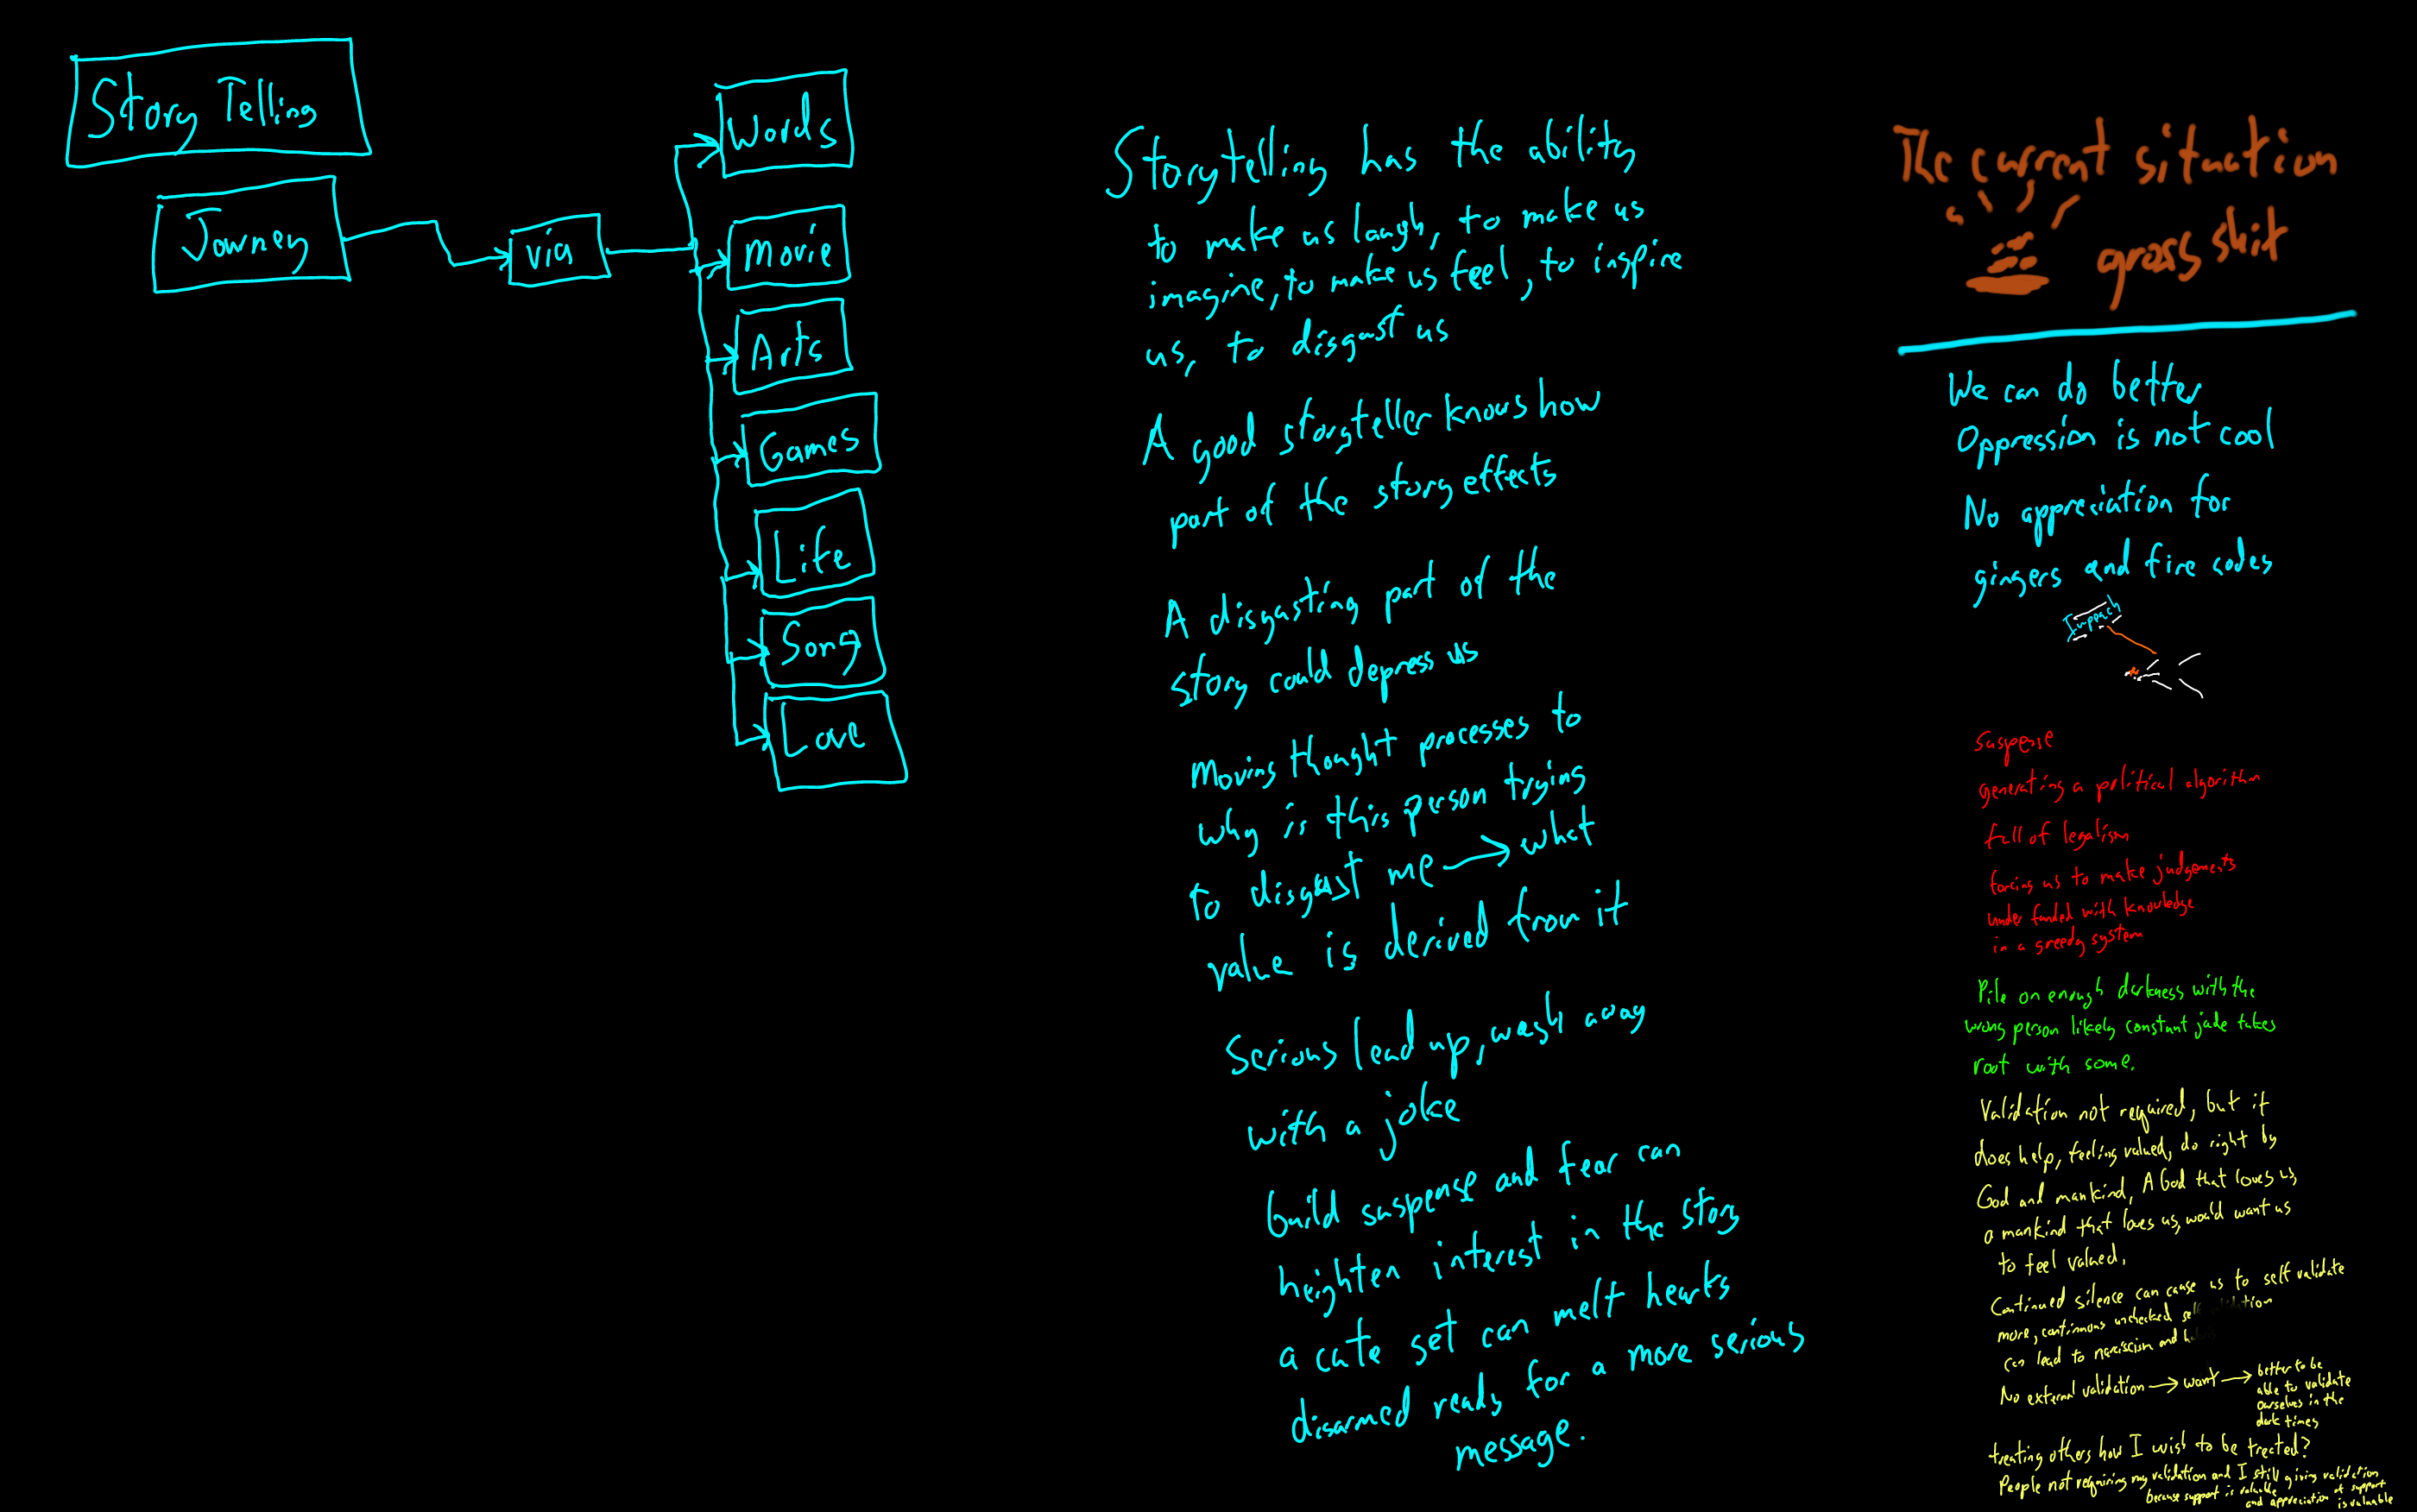 Story Telling
Journey
via
Words
Movie
Arts
Games
Life
Song
Love
Storytelling has the ability
to make us laugh, to make us
imagine, to make us feel, to inspire
us, to disgust us
A good storyteller knows how
part of the story effects
A disgusting part of the
story could depress us
Moving thought processes to
why is this person trying
to disgust me → what
value is derived from it
Serious lead up, wash away
with a joke
build suspense and fear can
heighten interest in the story
a cute set can melt hearts
disarmed ready for a more serious
message.
The current situation
gross shit
We can do better
Oppression is not cool
No appreciation for
gingers and fire codes
Suspense
generating a political algorithm
full of legalism
forcing us to make judgements
under funded with knowledge
in a greedy system
Pile on enough darkness with the
wrong person likely constant jade takes
root with some.
Validation not required, but it
does help, feeling valued, do right by
God and mankind, A God that loves us,
a mankind that loves us, would want us
to feel valued.
Continued silence can cause us to self validate
more, continuous unchecked self validation
can lead to narcissism and
No external validation → want → better to be
able to validate
ourselves in the
dark times
treating others how I wish to be treated?
People not requiring my validation and I still giving validation
because support is valuable
and appreciation of support
is valuable